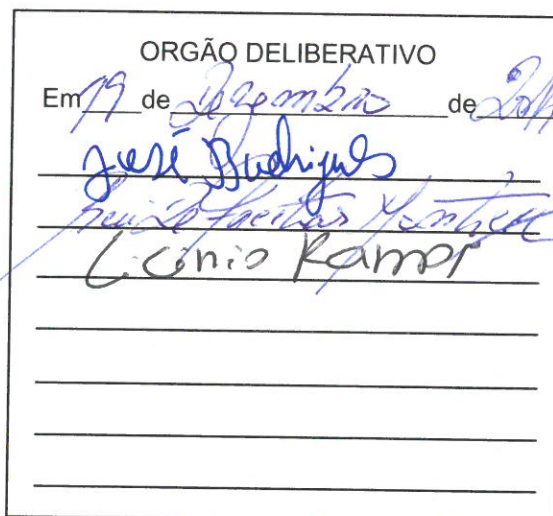 ORGÃO DELIBERATIVO
Em 19 de Dezembro de
José Rodrigues
de Freitas
Licínio Ramos